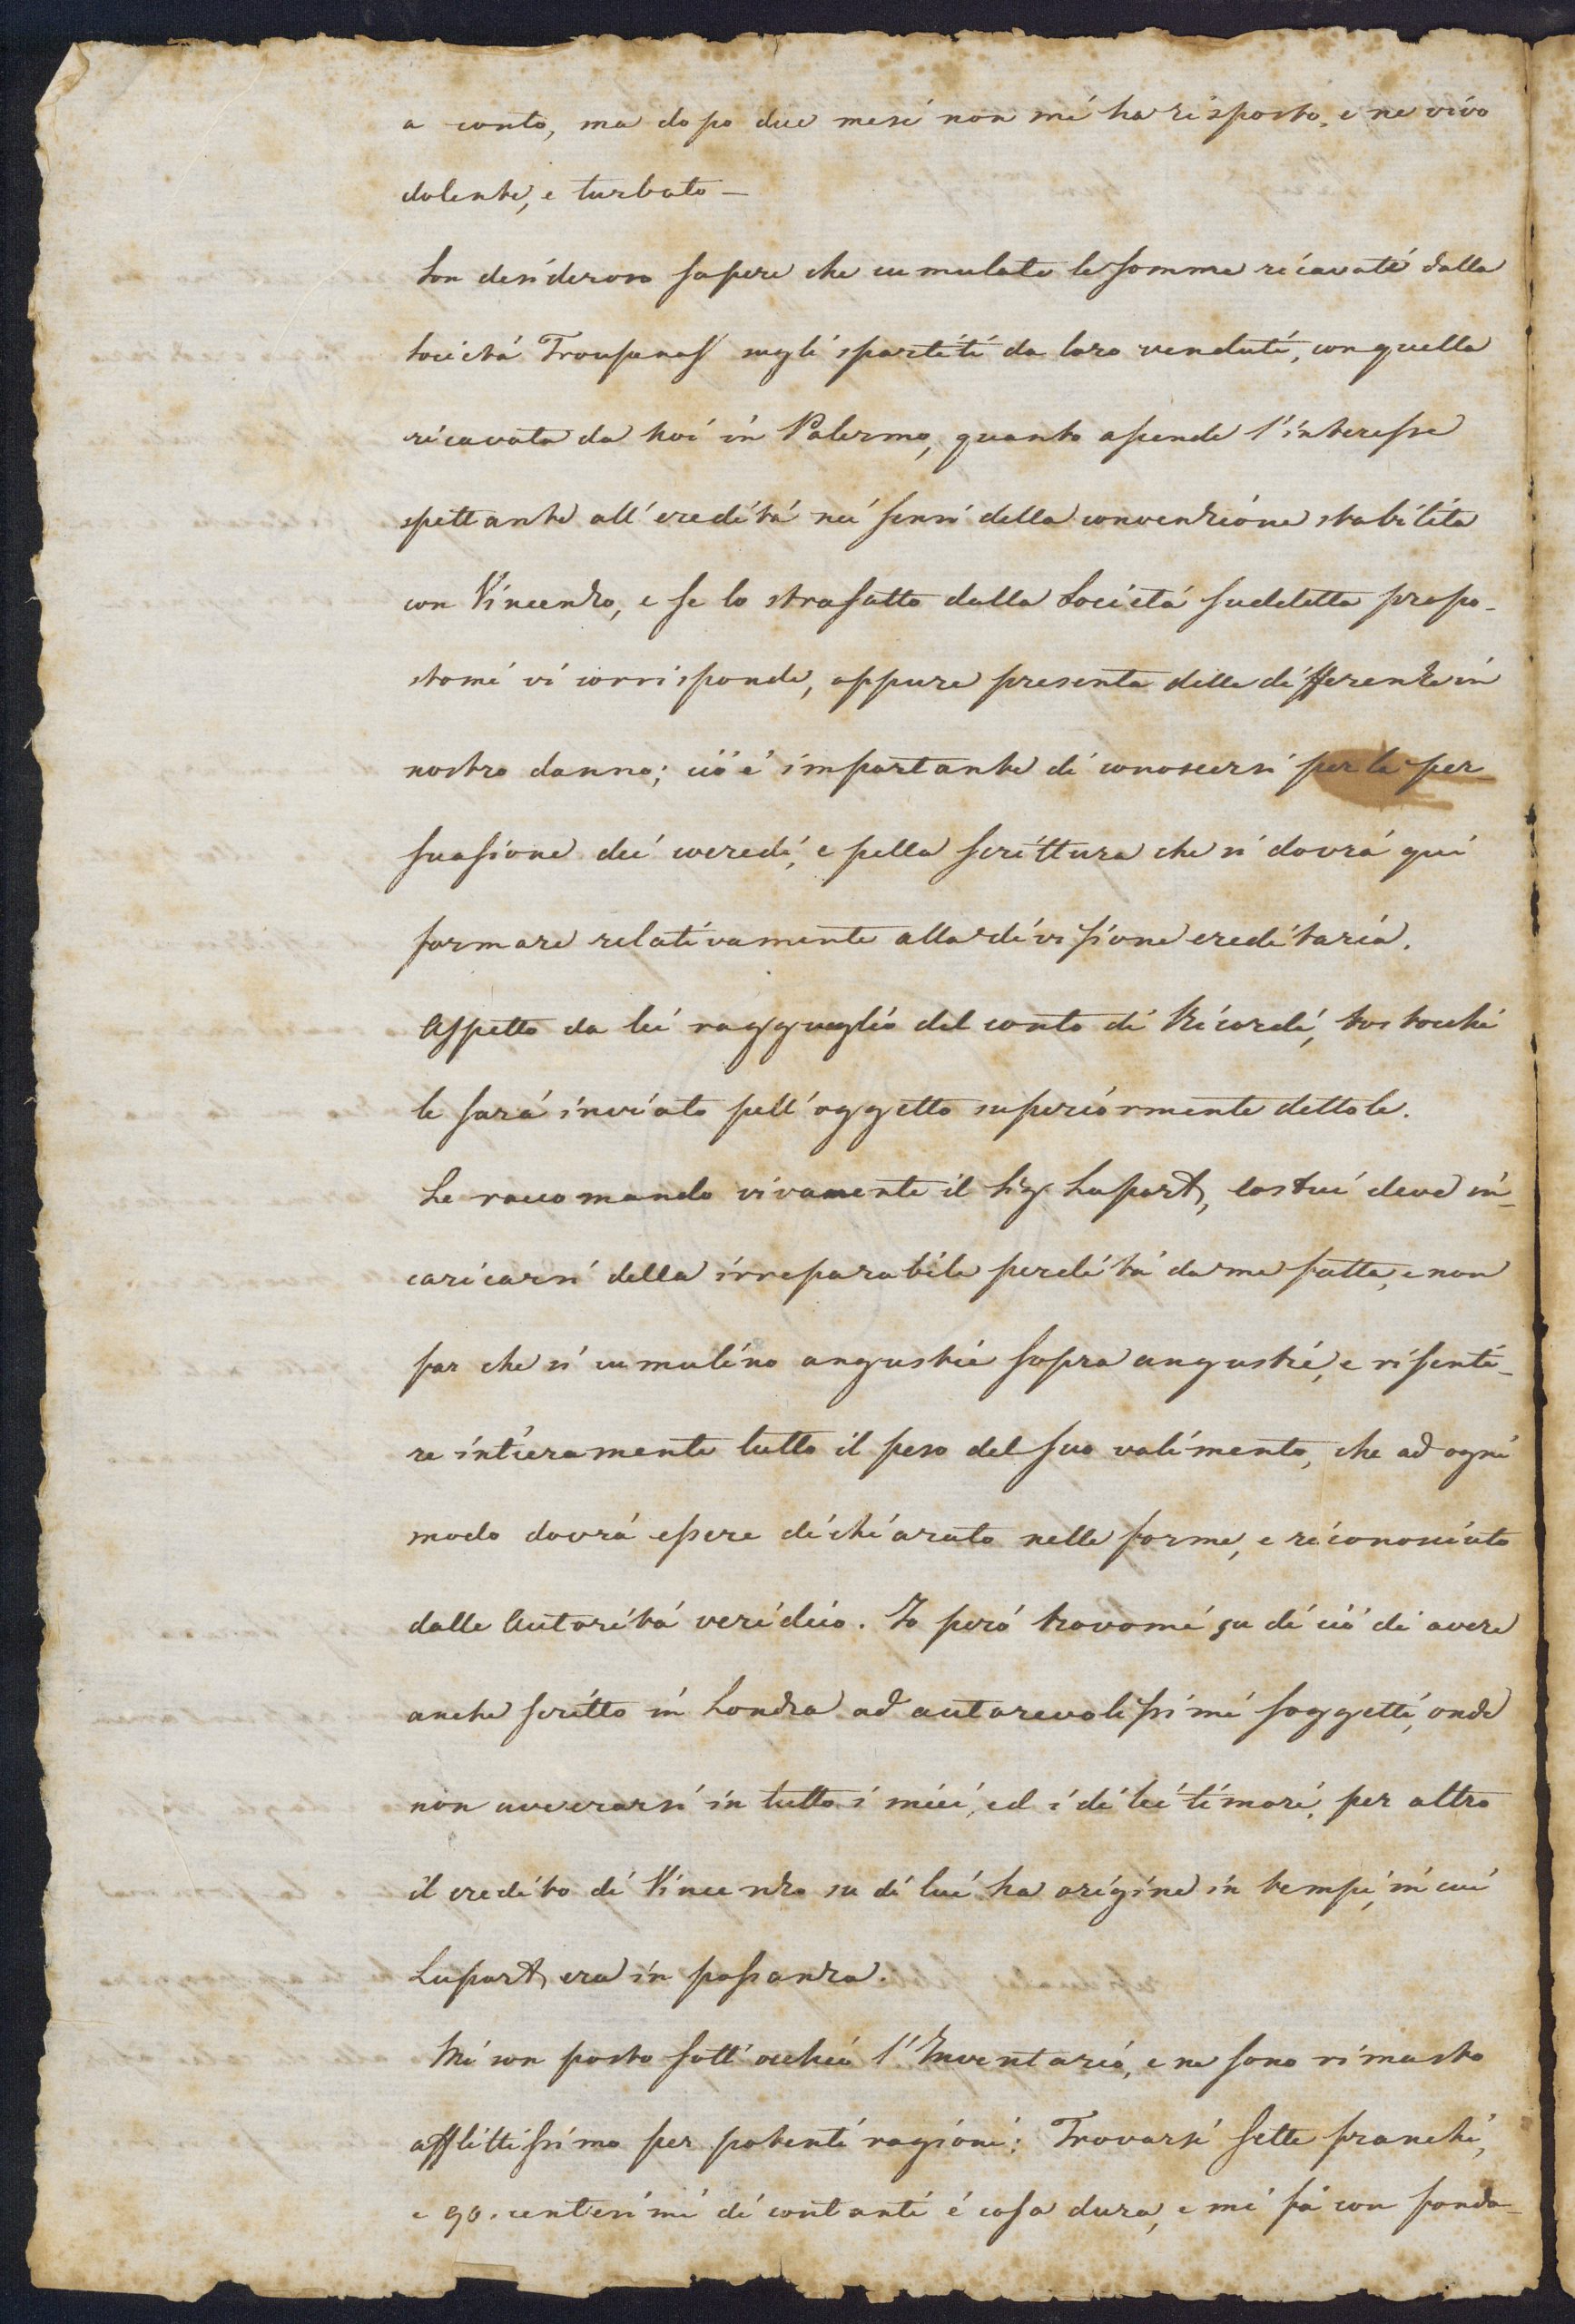 a conto, ma dopo due mesi non mi ha risposto, e ne vivo
dolente, e turbato –
Son desideroso sapere che cumulate le somme ricavate dalla
Società Troupenas sugli spartiti da loro venduti, con quella
ricavata da noi in Palermo, quanto ascende l'interesse
spettante all'eredità nei sensi della convenzione stabilita
con Vincenzo, e se lo strasatto dalla Società sudetta propo-
stomi vi corrisponde, oppure presenta delle differenze in
nostro danno; ciò è importante di conoscersi per la per
suasione dei coeredi, e pella scrittura che si dovrà quì
formare relativamente alla divisione ereditaria.
Aspetto da lei ragguaglio del conto di Ricordi, tostochè
le sarà inviato pell'oggetto superiormente dettole.
Le raccomando vivamente il Sig. Laport, costui deve in-
caricarsi della irreparabile perdita da me fatta, e non
far che si cumulino angustie sopra angustie, e risenti-
re intieramente tutto il peso del suo valimento, che ad ogni
modo dovrà essere dichiarato nelle forme, e riconosciuto
dalle Autorità veridico. Io però trovomi su di ciò di avere
anche scritto in Londra ad autorevolissimi soggetti, onde
non avverarsi in tutto i miei, ed i di lei timori, per altro
il credito di Vincenzo su di lui ha origine in tempi, in cui
Laport, era in possanza.
Mi son posto sott'occhio l'Inventario, e ne sono rimasto
afflittissimo per potenti ragioni: Trovarsi sette franchi,
e 90. centesimi di contanti è cosa dura, e mi fà con fonda-